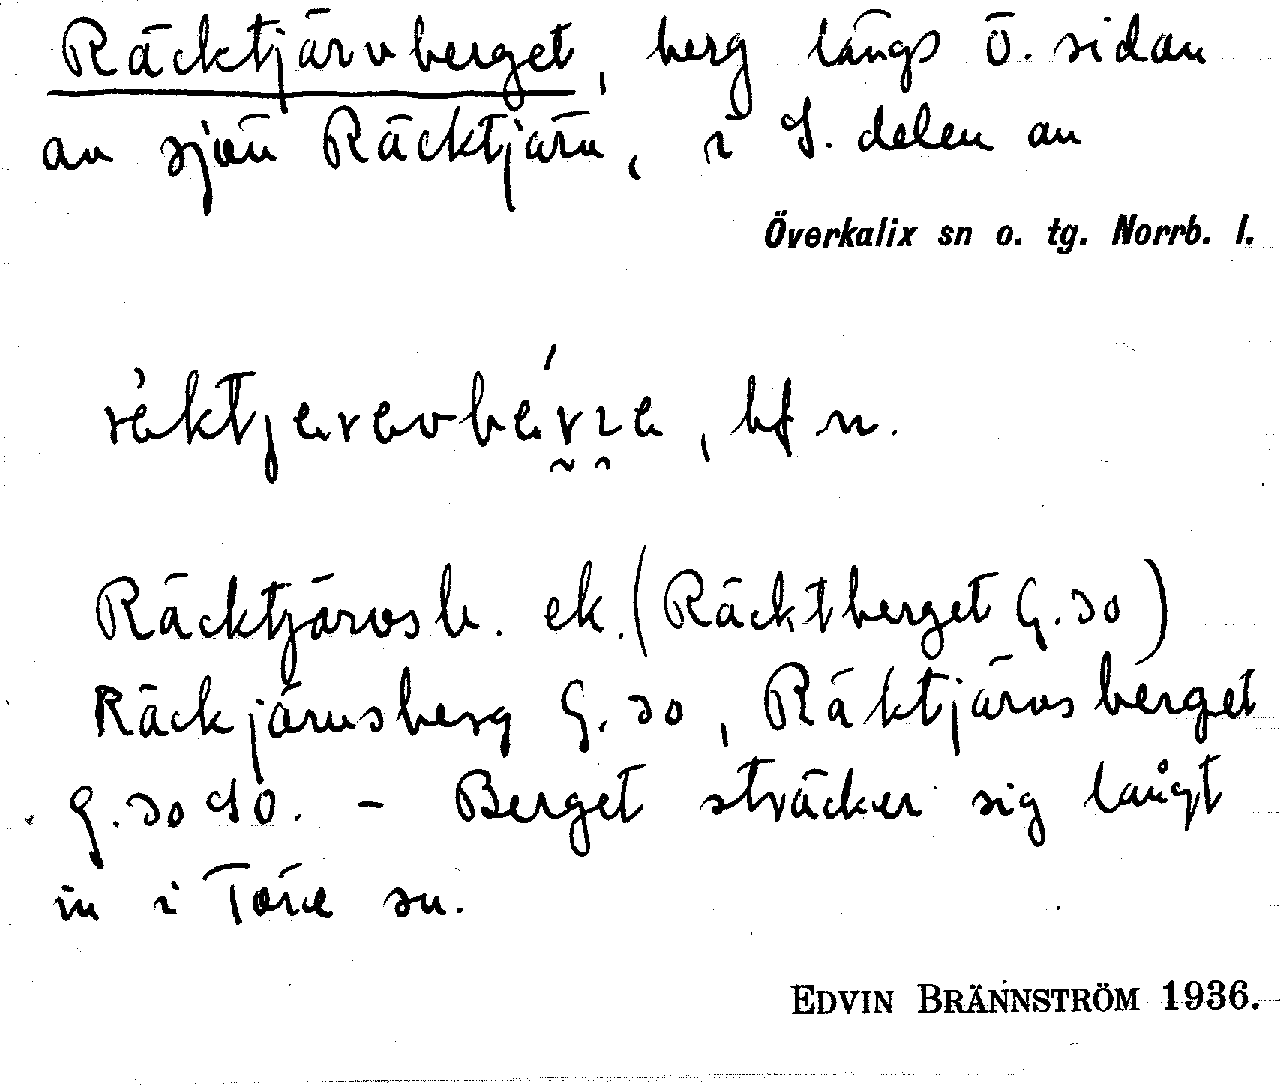 Räcktjärvberget, berg längs Ö. sidan
av sjön Räcktjärv, i S. delen av
Överkalix sn o. tg. Norrb. l.
bf n.
Räcktjärvsb. ek. (Räcktberget G. 30)
Räckjärvsberg G. 30, Räktjärvsberget
G. 30 SO. – Berget sträcker sig långt
in i Töre sn.
EDVIN BRÄNNSTRÖM 1936.